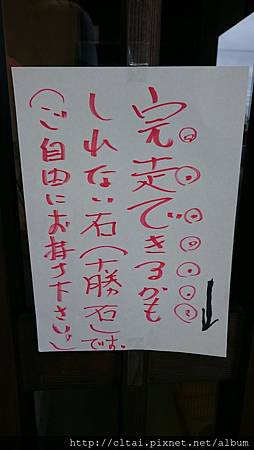 完走できるかも
しれない石(十勝石)です。
(ご自由にお持ち下さいっ)
http://cltai.pixnet.net/album